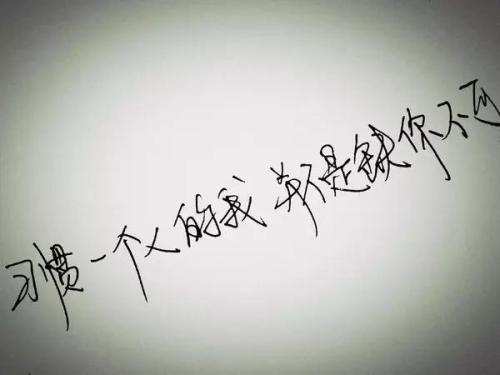 习惯一个人的我 并不是缺你不可